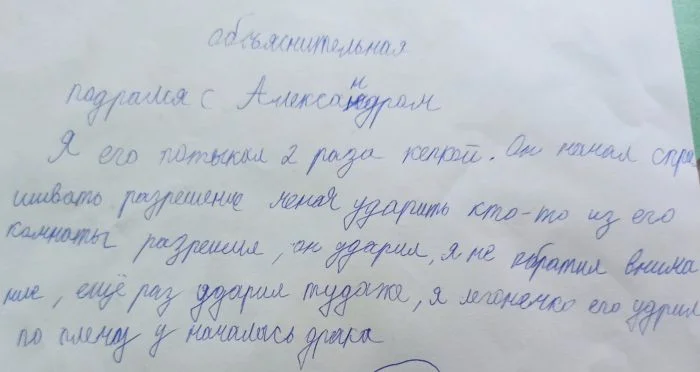 объяснительная
подрался с Александром
Я его потыкал 2 раза кепкой. Он начал спра
шивать разрешение меня ударить кто-то из его
комнаты разрешил, он ударил, я не обратил внима
ние, ещё раз ударил тудаже, я легонечко его удрил
по плечу у началась драка